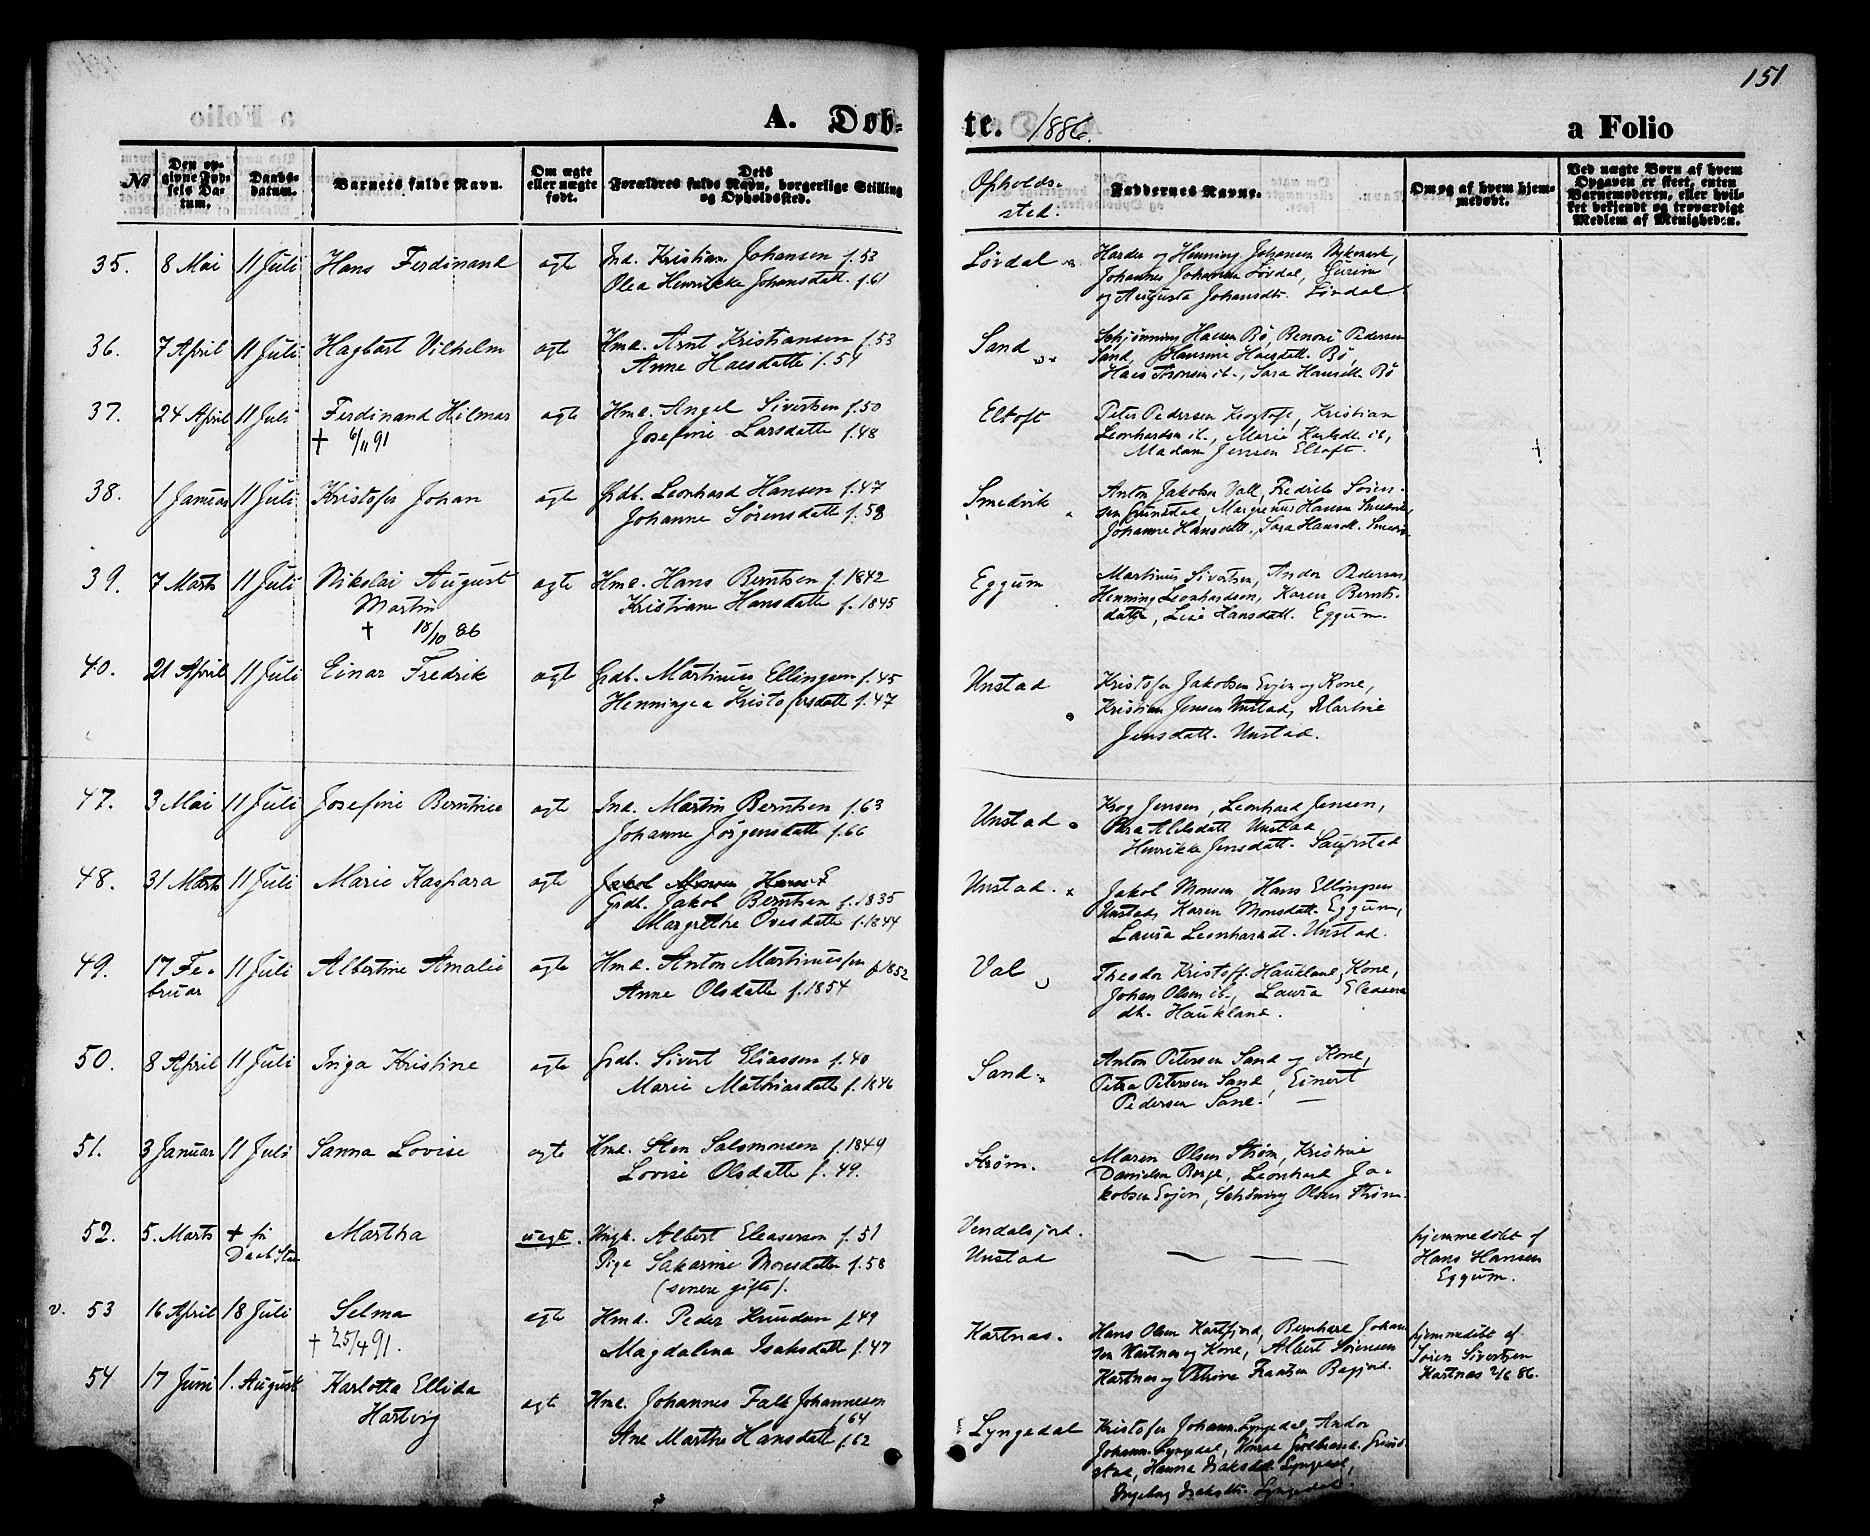 151
a Folio
A. Døb-
te. 1886.
a Folio
No
Den op-
givne Fød-
sels Da-
tum.
Daabs-
datum.
Barnets fulde Navn.
Om ægte
eller uægte
født.
Dets
Forældres fulde Navn, borgerlige Stilling
og Opholdssted.
Opholds-
sted.
Faddernes Navne.
Om og af hvem hjem-
medøbt.
Ved uægte Børn af hvem
Opgaven er skeet, enten
Barnemoderen, eller hvil-
ket bekjendt og troværdigt
Medlem af Menigheden.
35. 8 Mai 11 Juli Hans Ferdinand ægte Ind. Kristian Johansen f. 53
Olea Henrikke Johansdatt. f. 61
Lövdal
Harder og Henning Johansen
Johannes Johansen Lövdal,
og Augusta Johansdtr. Lövdal
36. 7 April 11 Juli Hagbart Vilhelm ægte Hmd. Arnt Kristiansen f. 53
Anne Haesdatte f. 54
Sand
Schjønning Haesen Bö, Benoni Pedersen
Sand, Hansine Haesdatt. Bö,
Haes Tronsen ib., Sara Hansdtt. Bö
37. 24 April 11 Juli Ferdinand Hilmar ægte Hmd. Angel Sivertsen f. 50
† 6/11 91
Josefine Larsdatte f. 48
Eltoft
Peter Pedersen Krogtoft, Kristian
Leonhardsen ib., Marie Karlsdt. ib,
Madam Jensen Eltoft.
38. 1 Januar 11 Juli Kristofer Johan ægte Grdb. Leonhard Hansen f. 47
Johanne Sørensdatte f. 58
Smedvik
Anton Jakobsen Vall, Fredrik Sören-
sen Grundstad, Margrenus Hansen Smedvik,
Johanne Hansdatt., Sara Hansdt. Smedvik
39. 7 Marts 11 Juli Nikolai August
Martin
† 18/10 86
ægte Hmd. Hans Berntsen f. 1842
Kristiane Hansdatte f. 1845
Eggum
Martinus Sivertsen, Andor Pedersen,
Henning Leonhardsen, Karen Bernts-
datte, Lise Hansdatt. Eggum.
40. 21 April 11 Juli Einar Fredrik ægte Grdb. Martinus Ellingsen f. 45
Henningea Kristofersdatt f. 47
Unstad
Kristofer Jakobsen Evjen og Kone,
Kristian Jensen Unstad, Martine
Jensdatt. Unstad.
47. 3 Mai 11 Juli Josefine Berntine ægte Ind. Martin Berntsen f. 63
Johanne Jörgensdatte f. 66
Unstad
Krog Jensen, Leonhard Jensen,
Abelsdatt Unstad
Henrikke Jensdatt. Saupstad
48. 31 Marts 11 Juli Marie Kaspara ægte Jakob Monsen Hans E
Grdb. Jakob Berntsen f. 1835
Margrethe Ovesdatte f. 1844
Unstad.
Jakob Monsen Hans Ellingsen
Unstad, Karen Monsdatt. Eggum,
Laura Leonhardsdt. Unstad.
49. 17 Fe-
bruar
11 Juli Albertine Amalie ægte Hmd. Anton Martinussen f. 1852
Anne Olsdatte f. 1854
Val
Theodor Kristoff. Haukland, Kone,
Johan Olsen ib., Laura Eleasera
dt. Haukland.
50. 8 April 11 Juli Inga Kristine ægte Grdb. Sivert Eliassen f. 40
Marie Mathiasdatt f. 1846
Sand
Anton Petersen Sand og Kone,
Petra Petersen Sand, Einert
Pedersen Sand. —
51. 3 Januar 11 Juli Sanna Lovise ægte Hmd. Sten Salomonsen f. 1849
Lovise Olsdatte f. 49.
Strøm.
Maren Olsen Strøm, Kristine
Danielsen Borge, Leonhard Ja-
kobsen Evjen, Schöning Olsen Strøm.
52. 5. Marts † før
Daab
Martha uægt. Ungk. Albert Eleasersen f. 51
Pige Sakarine Monsdatte f. 58
(senere gifte).
Vendalsjord.
Unstad
— —
hjemmedøbt af
Hans Hansen
Eggum.
v. 53 16 April 18 Juli Selma
† 25/4 91.
ægte Hmd. Peder Knudsen f. 49
Magdalena Isaksdatt f. 47
Hartnæs.
Hans Olsen Hartfjord, Bernhard Johan
sen Hartnes og Kone, Albert Sørensen
Hartnes og Petrine Knutsen
hjemmedøbt af
Sören Sivertsen
Hartnæs 2/6 86.
54 17 Juni 1. August Karlotta Ellida
Hartvig
ægte Hmd. Johannes Falk Johannesen
f. 64
Ane Marthe Hansdatt f. 62
Lyngedal
Kristofer Johann. Lyngedal, Andor
Johann. Lyngedal,
stad, Hanna Isaksdt. Lyngedal,
Ingeborg Isaksdtr. Lyngedal.